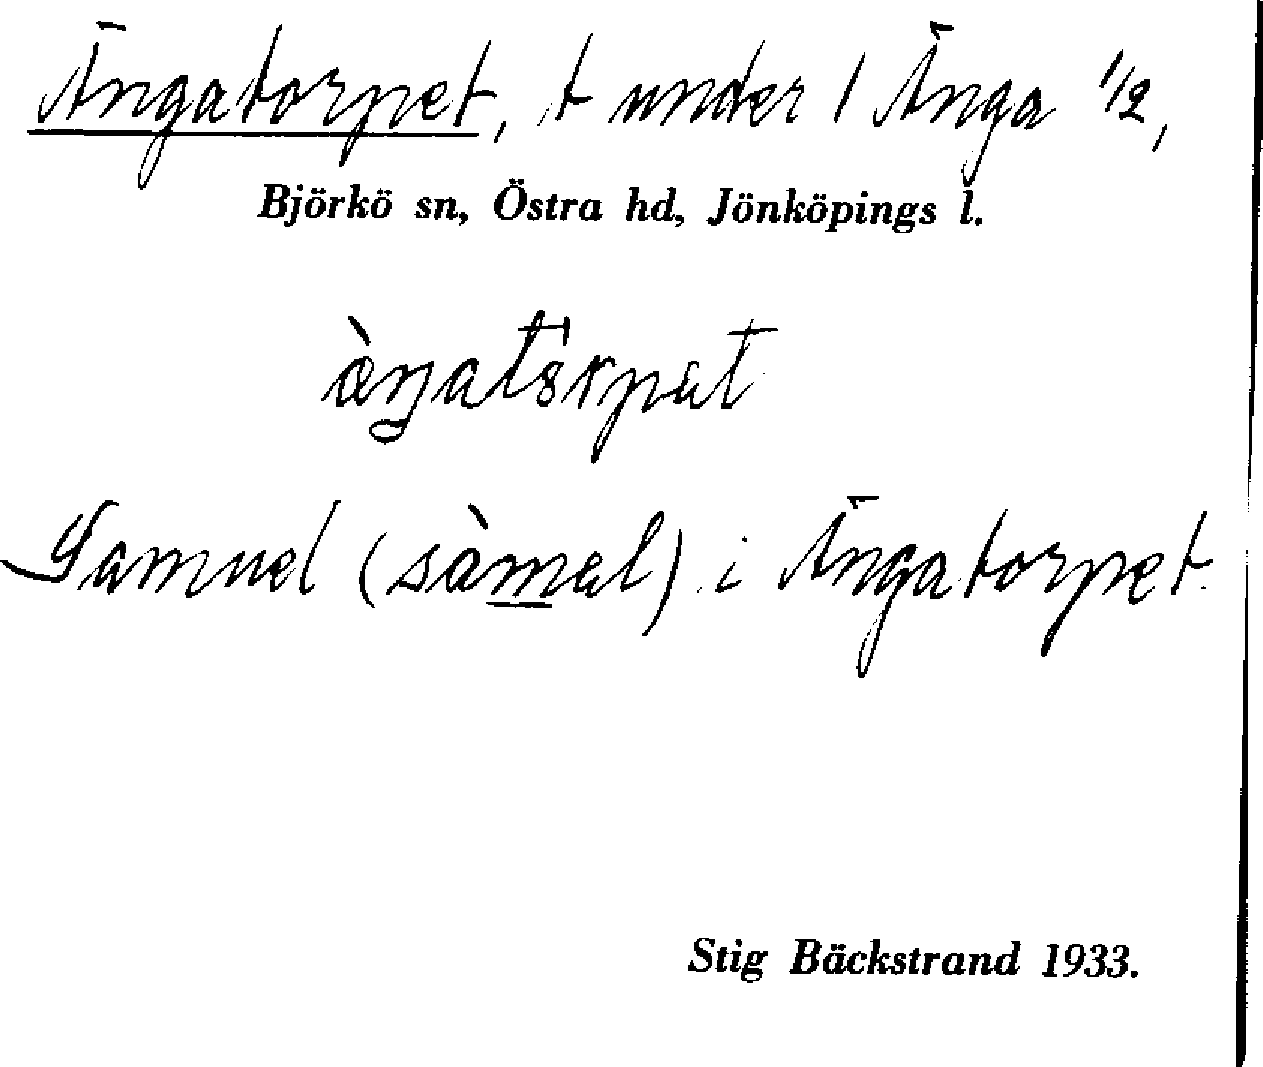 Ängatorpet, t under 1 Änga 1/2,
Björkö sn, Östra hd, Jönköpings l.
Samuel (sàməl) i Ängatorpet.
Stig Bäckstrand 1933.